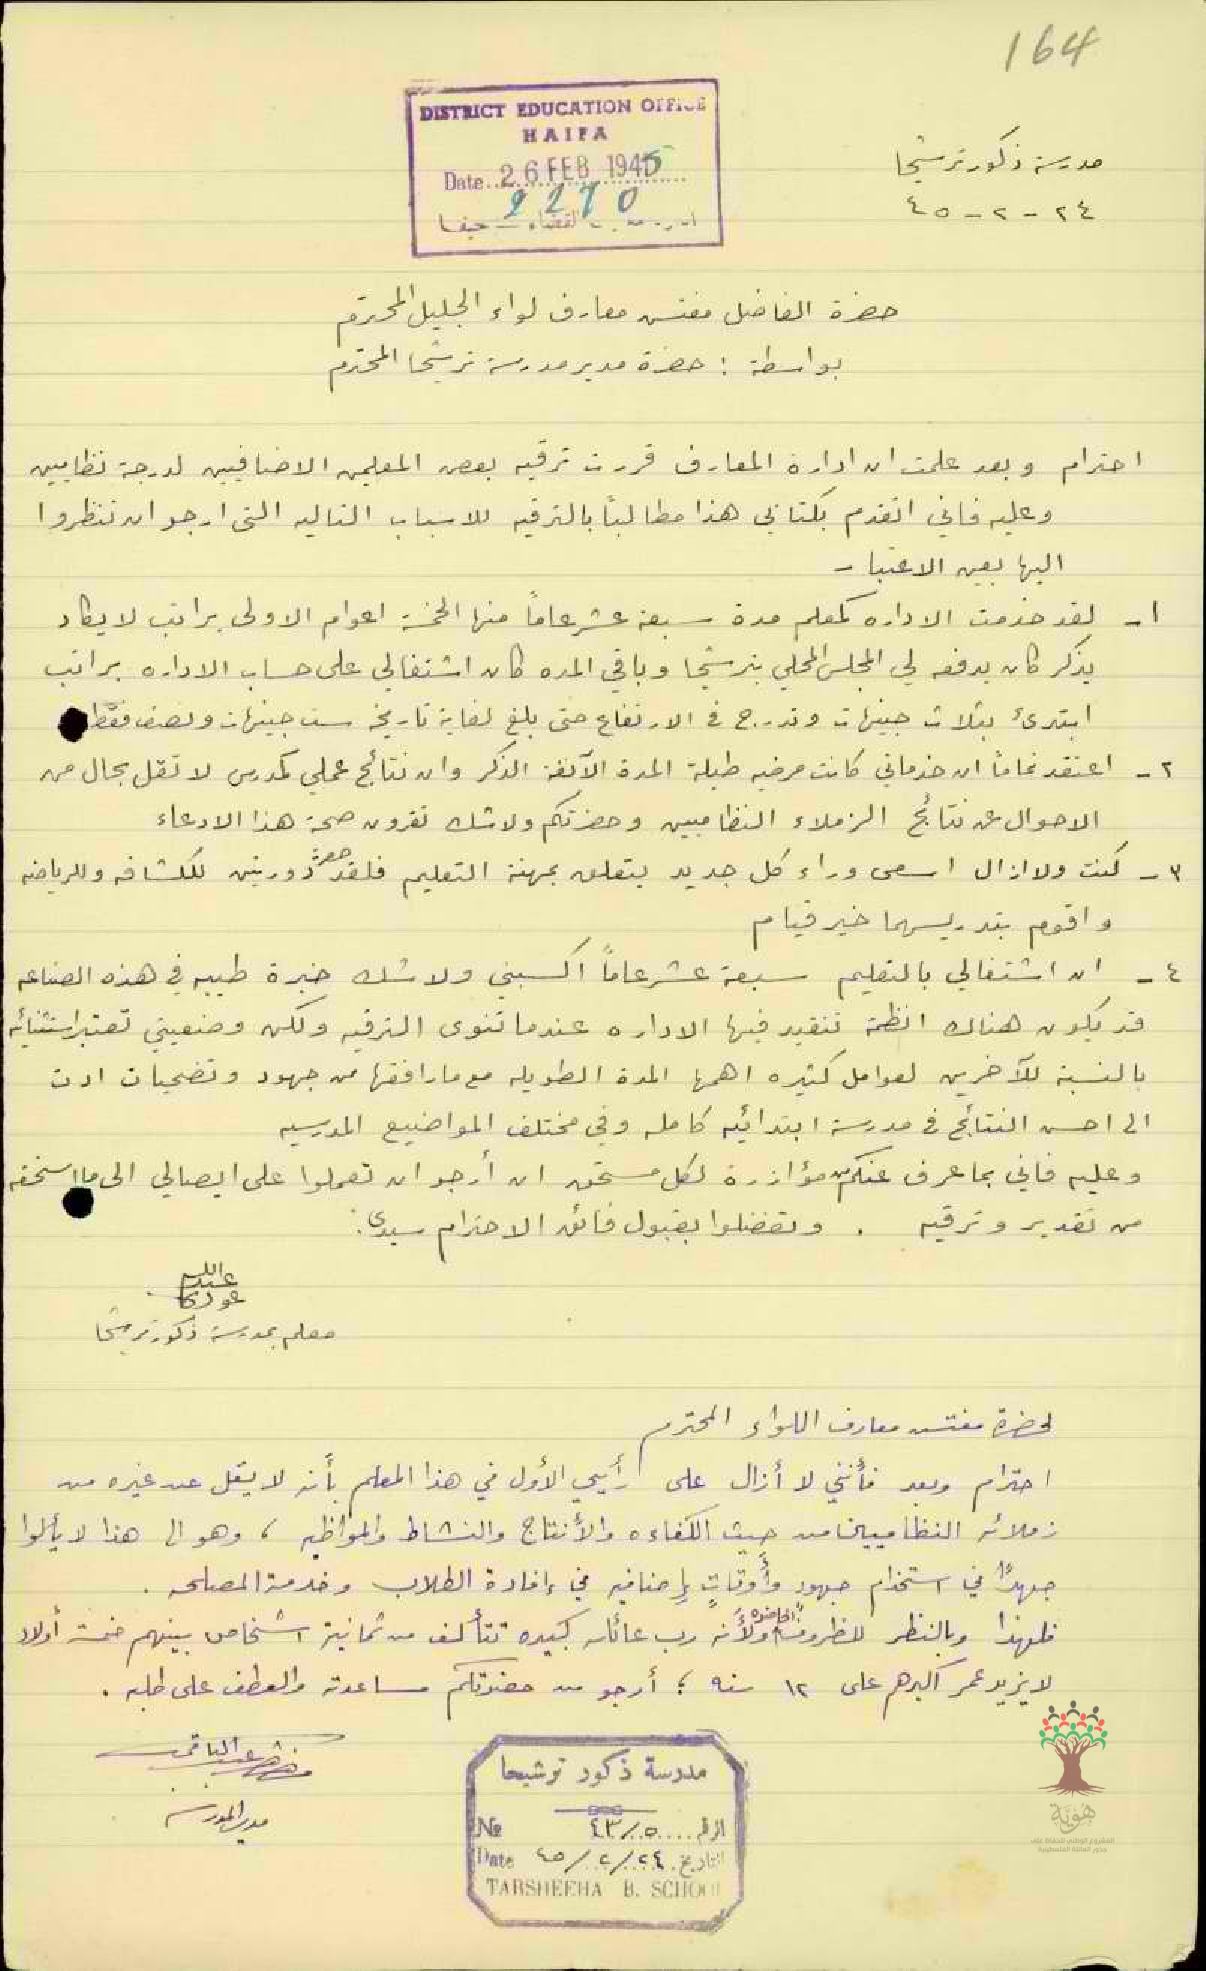 164
DISTRICT EDUCATION OFFICE
HAIFA
Date 26 FEB 1945
2270
حيفا
مدرسة ذكور ترشيحا
٢٤-٢-٤٥
حضرة الفاضل مفتش معارف لواء الجليل المحترم
بواسطة : حضرة مدير مدرسة ترشيحا المحترم
احترام وبعد علمت ان ادارة المعارف قررت ترقيه بعض المعلمين الاضافيين لدرجة نظاميين
وعليه فاني اتقدم بكتابي هذا مطالبًا بالترقيه للاسباب التاليه التي ارجو ان تنظروا
اليها بعين الاعتبار
١- لقد خدمت الاداره كمعلم مدة سبعة عشر عامًا منها الخمسة اعوام الاولى براتب لا يكاد
يذكر كان يدفعه لي المجلس المحلي بترشيحا وباقي المده كان اشتغالي على حساب الاداره براتب
ابتدئ بثلاث جنيهات وتدرج في الارتفاع حتى بلغ لغاية تاريخه ست جنيهات ونصف فقط
٢- اعتقد تمامًا ان خدماتي كانت مرضيه طيلة المدة الآنفة الذكر وان نتائج عملي كمدرس لا تقل بحال من
الاحوال عن نتائج الزملاء النظاميين وحضرتكم ولا شك تقرون صحة هذا الادعاء
٣- كنت ولا ازال اسعى وراء كل جديد يتعلق بمهنة التعليم فلقد حضرت دورتين للكشافه وللرياضه
واقوم بتدريسهما خير قيام
٤- ان اشتغالي بالتعليم سبعة عشر عامًا اكسبني ولا شك خبرة طيبه في هذه الصناعه
قد يكون هناك انظمة تتقيد فيها الاداره عندما تنوى الترقيه ولكن وضعيتي تعتبر استثنائيه
بالنسبة للآخرين لعوامل كثيره اهمها المدة الطويله مع ما رافقها من جهود وتضحيات ادت
الى احسن النتائج في مدرسة ابتدائيه كامله وفي مختلف المواضيع المدرسيه
وعليه فاني بما عرف عنكم من مؤازرة لكل مستحق ان أرجو ان تعملوا على ايصالي الى ما استحقه
من تقدير وترقيه . وتفضلوا بقبول فائق الاحترام سيدى
عبدالله
معلم بمدرسة ذكور ترشيحا
لحضرة مفتش معارف اللواء المحترم
احترام وبعد فأنني لا أزال على رأيي الأول في هذا المعلم بأنه لا يقل عن غيره من
زملائه النظاميين من حيث الكفاءه والأنتاج والنشاط والمواظبه ، وهو الى هذا لا يألوا
جهدًا في استخدام جهود وأوقات إضافيه في إفادة الطلاب وخدمة المصلحه .
فلهذا وبالنظر للظروف الحاضره ولأنه رب عائله كبيره تتألف من ثمانية اشخاص بينهم خمسة أولاد
لا يزيد عمر اكبرهم على ١٢ سنه ؛ أرجو من حضرتكم مساعدته والعطف على طلبه .
مدير المدرسه
مدرسة ذكور ترشيحا
№ ٤٣/٥ الرقم
Date ٤٥/٢/٢٤ التاريخ
TARSHEEHA B. SCHOOL
هوية
المشروع الوطني للحفاظ على
جذور العائلة الفلسطينية